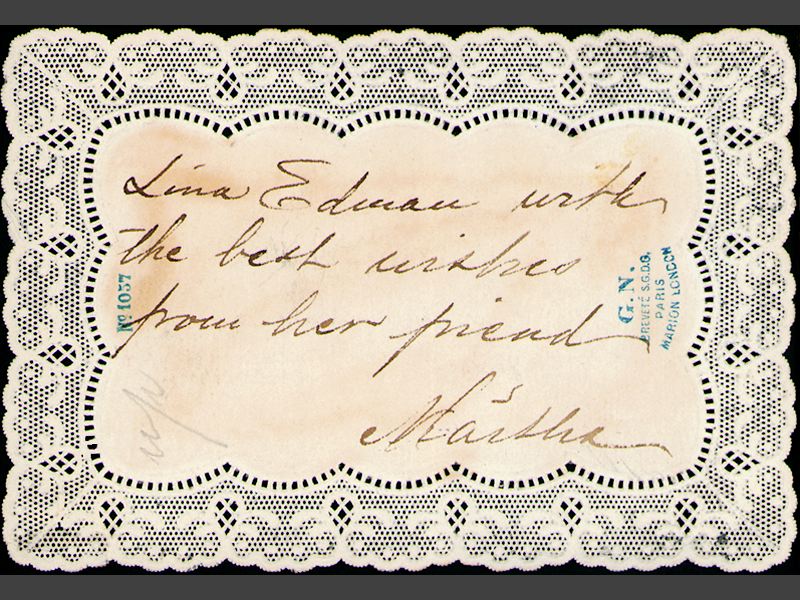 Lina Edman with
the best wishes
from her friend
Märtha
No 1057
G.N.
BREVETÉ S.G.D.G.
PARIS
MARION LONDON